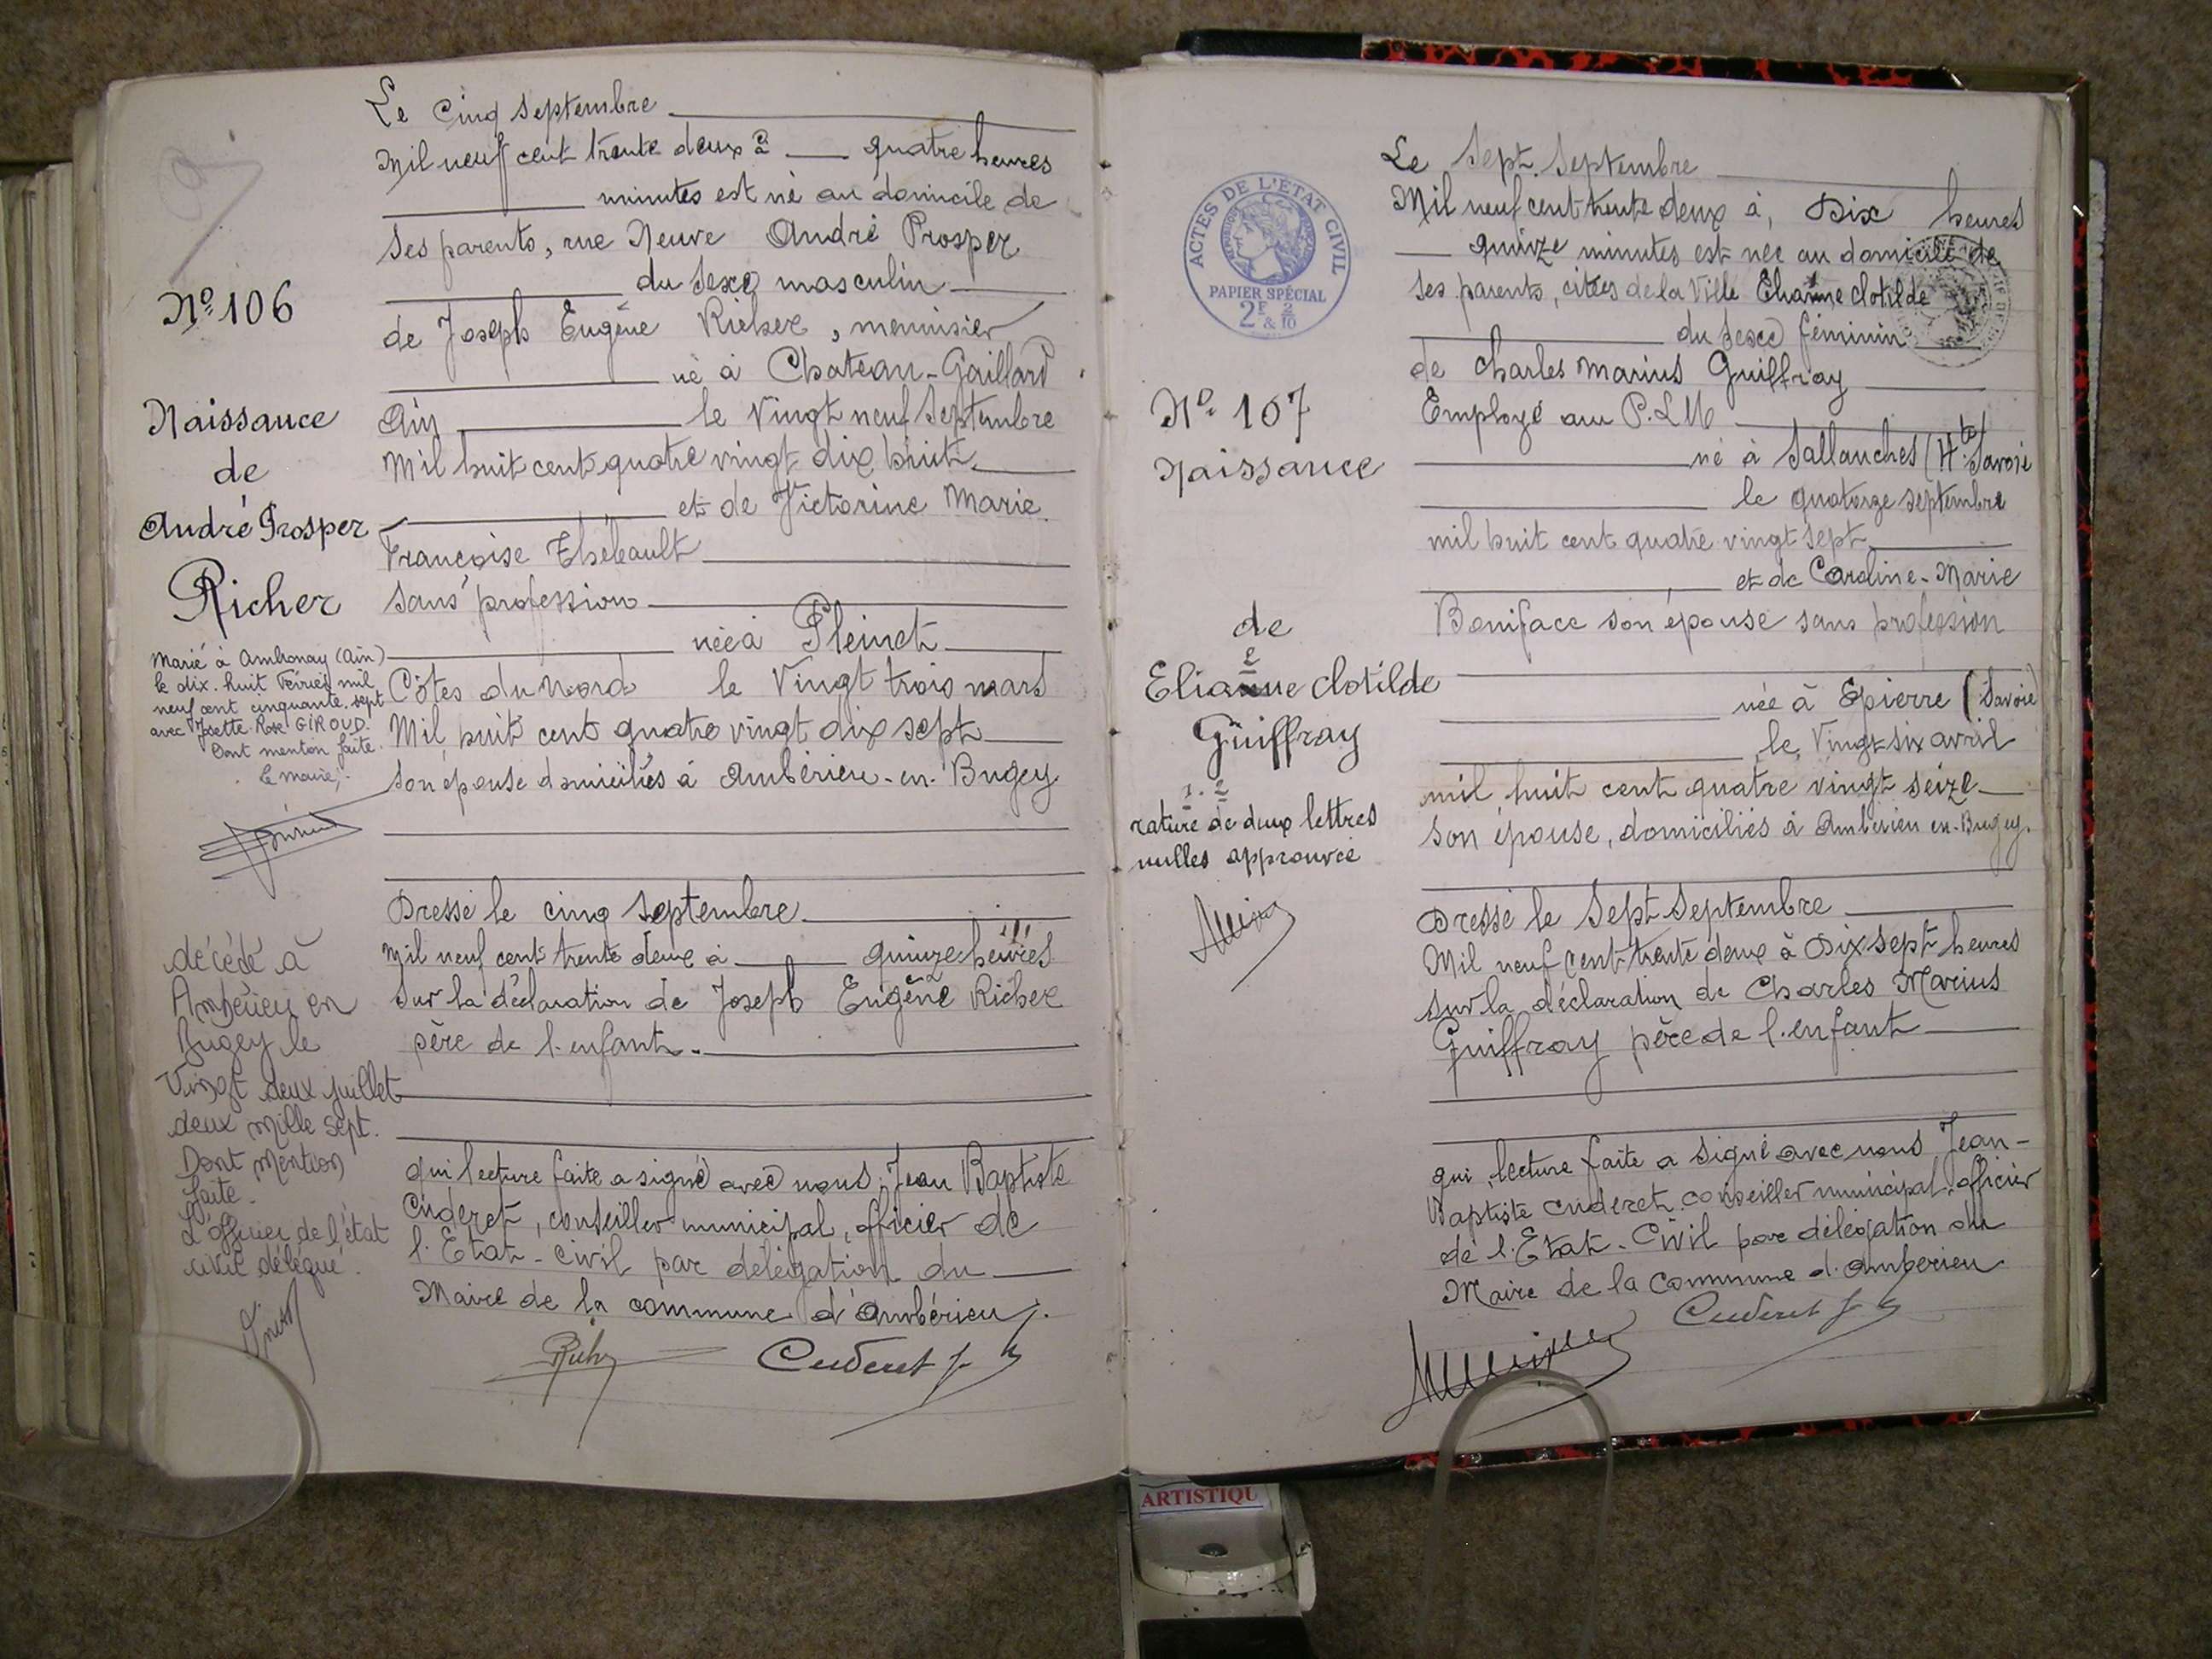 Le Cinq septembre
Mil neuf cent trente deux à quatre heures
minutes est né au domicile de
ses parents, rue Neuve André Prosper
du sexe masculin
de Joseph Eugène Richer, menuisier
né à Chateau-Gaillard
Ain le Vingt neuf Septembre
Mil huit cent quatre vingt dix huit
et de Victorine Marie
Françoise Thébault
sans profession
née à Pleinet
Côtes du Nord le Vingt trois mars
Mil huit cent quatre vingt dix sept
son épouse domiciliés à Ambérieu-en-Bugey
Dressé le cinq septembre
Mil neuf cent trente deux à quinze heures
Sur la déclaration de Joseph Eugène Richer
père de l'enfant.
qui lecture faite a signé avec nous, Jean Baptiste
Cuderet, conseiller municipal, officier de
l'Etat-civil par délégation du
Maire de la commune d'Ambérieu
Cuderet J
Nº 106
Naissance
de
André Prosper
Richer
Marié à Ambronay (Ain)
le dix-huit Février mil
neuf cent cinquante-sept
avec Josette Rose GIROUD.
Dont mention faite.
Le maire,
décédé à
Ambérieu en
Bugey le
Vingt deux juillet
deux mille sept.
Dont mention
faite.
L'officier de l'état
civil délégué.
ACTES DE L'ETAT CIVIL
PAPIER SPÉCIAL
2F & 2/10
Nº 107
Naissance
de
2
Elianne Clotilde
Guiffray
1. 2
rature de deux lettres
nulles approuvée
Le Sept Septembre
Mil neuf cent trente deux à, Dix heures
quinze minutes est née au domicile de
ses parents, cités de la Ville Elianne Clotilde
du sexe féminin
de Charles Marius Guiffray
Employé au P.L.M
né à Sallanches (Hte Savoie
le quatorze septembre
mil huit cent quatre vingt sept
et de Caroline-Marie
Boniface son épouse sans profession
née à Epierre (Savoie)
le Vingt six avril
mil huit cent quatre vingt seize
son épouse, domiciliés à Ambérieu en-Bugey.
Dressé le Sept Septembre
Mil neuf cent trente deux à Dix sept heures
sur la déclaration de Charles Marius
Guiffray père de l'enfant
qui, lecture faite a signé avec nous Jean-
Baptiste Cuderet conseiller municipal, officier
de l'Etat-Civil par délégation du
Maire de la Commune d'Ambérieu
Cuderet J
ARTISTIQU